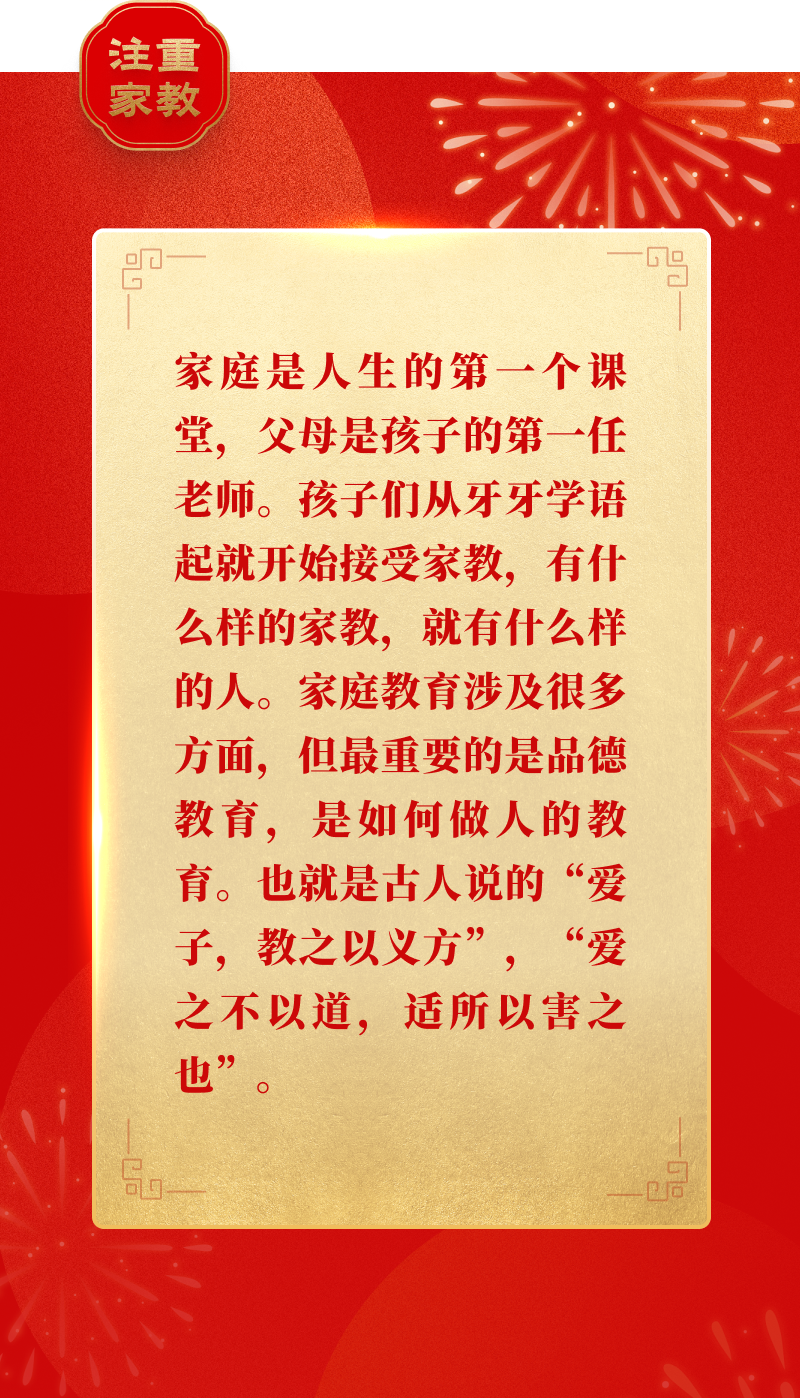 注重
家教
家庭是人生的第一个课
堂，父母是孩子的第一任
老师。孩子们从牙牙学语
起就开始接受家教，有什
么样的家教，就有什么样
的人。家庭教育涉及很多
方面，但最重要的是品德
教育，是如何做人的教
育。也就是古人说的“爱
子，教之以义方”，“爱
之不以道，适所以害之
也”。